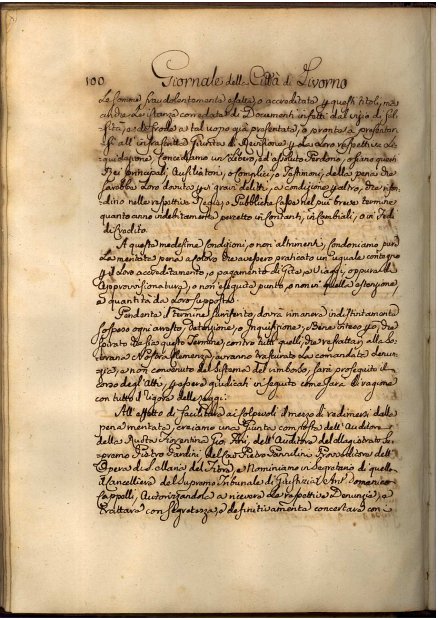 100 Giornale della Città di Livorno
le somme fraudolentemente esatte, o accreditate p questi titoli, ma
anche le istanze corredate di Documenti infetti del vizio di fal-
sità, e de frode a tal uopo già presentate, o pronte a presentar-
si all' infrascritta Giunta di Revisione p la loro respettiva Li-
quidazione, Concediamo un libero, ed assoluto Perdono, o siano questi
Rei principali, Ausiliatori, o Complici, o Testimoni, della pena che
sarebbe loro dovuta p sì gravi delitti, a condizione p altro, che
dino nelle respettive Regie, o Pubbliche Casse nel più breve termine
quanto anno indebitamente percetto in Contanti, in Cambiali, o in Fedi
di Credito.
A queste medesime Condizioni, e non altrimenti, Condoniamo pure
la meritata pena a coloro che avessero praticato un' eguale contegno
p il loro accreditamento, o pagamento di Gite, e Viaggi, oppure di
Approvvisionature, o non eseguite punto, o non in quella estensione,
e quantità da loro supposte.
Pendente il termine surriferito, dovrà rimanere indistintamente
sospeso ogni arresto, detenzione, o Inquisizione; Bene inteso p, che
spirato che sia questo Termine, contro tutti quelli, che refrattarj alla So-
vrana Nostra Clemenza, avranno trascurato la comandata denun-
zia, e non convenuto del sistema del rimborso, sarà proseguito il
corso degl' Atti, p essere giudicati in seguito come sarà di ragione
con tutto il rigore delle Leggi:
All' effetto di facilitare ai Colpevoli il mezzo di redimersi dalle
pene meritate, creiamo una Giunta composta dell' Auditore
della Ruota Fiorentina Gio: , dell' Auditore del Magistrato Su-
premo Pietro Pardini, del Cav: Pietro Provveditore dell'
Opera di S. Maria del Fiore, e Nominiamo in Segretario di quella
il Cancelliere del Supremo Tribunale di Giustizia Ant: Domenico
Cappelli, Autorizzandola a ricevere le respettive Denunzie, e
trattare con segretezza, e definitivamente concertare con